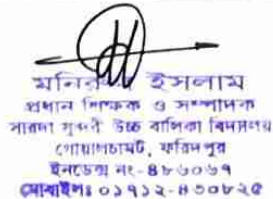 ইসলাম
প্রধান শিক্ষক ও সম্পাদক
সারদা সুন্দরী উচ্চ বালিকা বিদ্যালয়
গোয়ালচামট, ফরিদপুর
ইনডেক্স নং-৪৮৬০৬৭
মোবাইলঃ ০১৭১২-৪৩০৮২৫